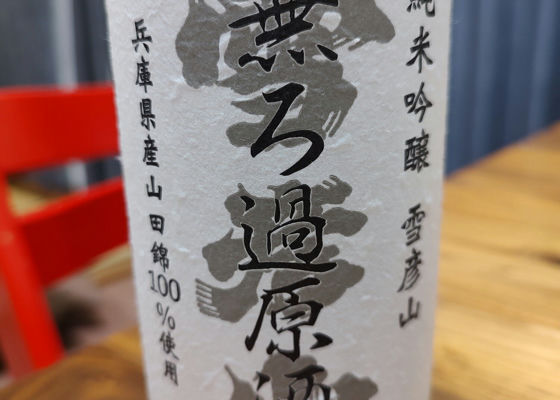 純米吟醸 雪彦山
無ろ過原酒
兵庫県産山田錦100%使用